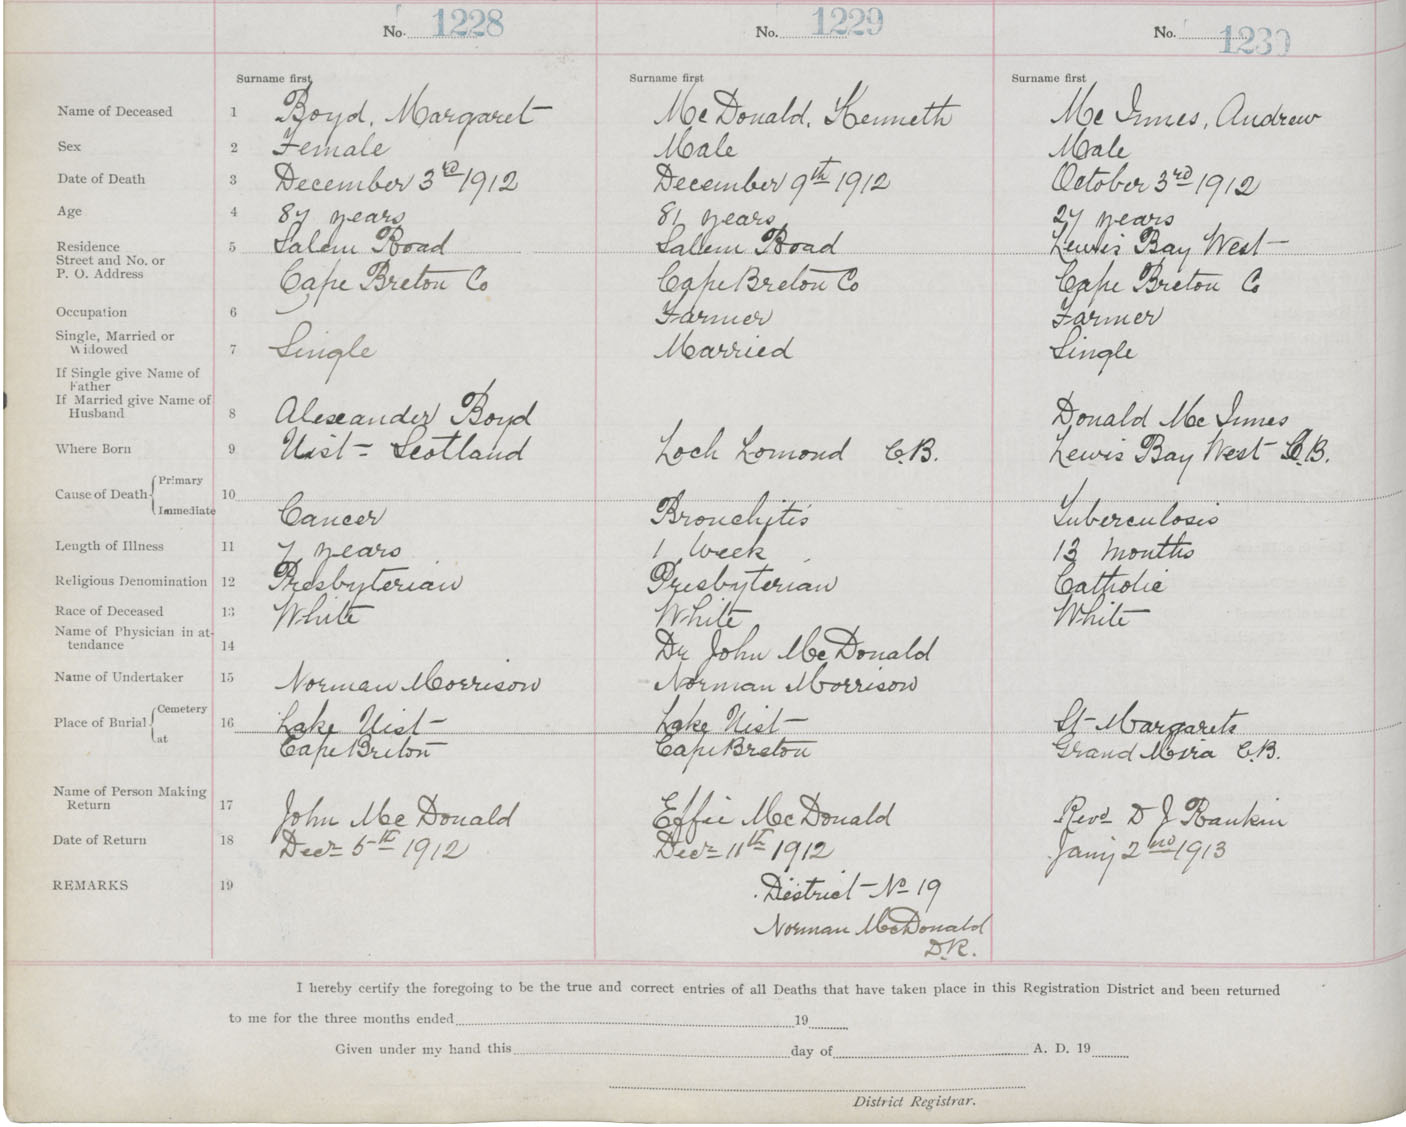 No. 1228 No. 1229 No. 1230
Surname first Surname first Surname first
Name of Deceased 1 Boyd, Margaret McDonald, Kenneth McInnes, Andrew
Sex 2 Female Male Male
Date of Death 3 December 3rd 1912 December 9th 1912 October 3rd 1912
Age 4 87 years 81 years 27 years
Residence 5 Salem Road Salem Road Lewis Bay West
Street and No. or
P. O. Address Cape Breton Co Cape Breton Co Cape Breton Co
Occupation 6 Farmer Farmer
Single, Married or
Widowed 7 Single Married Single
If Single give Name of
Father
If Married give Name of
Husband 8 Alexander Boyd Donald McInnes
Where Born 9 Uist - Scotland Loch Lomond C.B. Lewis Bay West C.B.
Cause of Death Primary 10
Immediate Cancer Bronchitis Tuberculosis
Length of Illness 11 7 years 1 Week 13 months
Religious Denomination 12 Presbyterian Presbyterian Catholic
Race of Deceased 13 White White White
Name of Physician in at-
tendance 14 Dr John McDonald
Name of Undertaker 15 Norman Morrison Norman Morrison
Place of Burial Cemetery 16 Lake Uist Lake Uist St Margarets
at Cape Breton Cape Breton Grand Mira C.B.
Name of Person Making
Return 17 John McDonald Effie McDonald Revd D J Rankin
Date of Return 18 Decr 5th 1912 Decr 11th 1912 Jany 2nd 1913
REMARKS 19 District No 19
Norman McDonald
D.R.
I hereby certify the foregoing to be the true and correct entries of all Deaths that have taken place in this Registration District and been returned
to me for the three months ended 19
Given under my hand this day of A. D. 19
District Registrar.